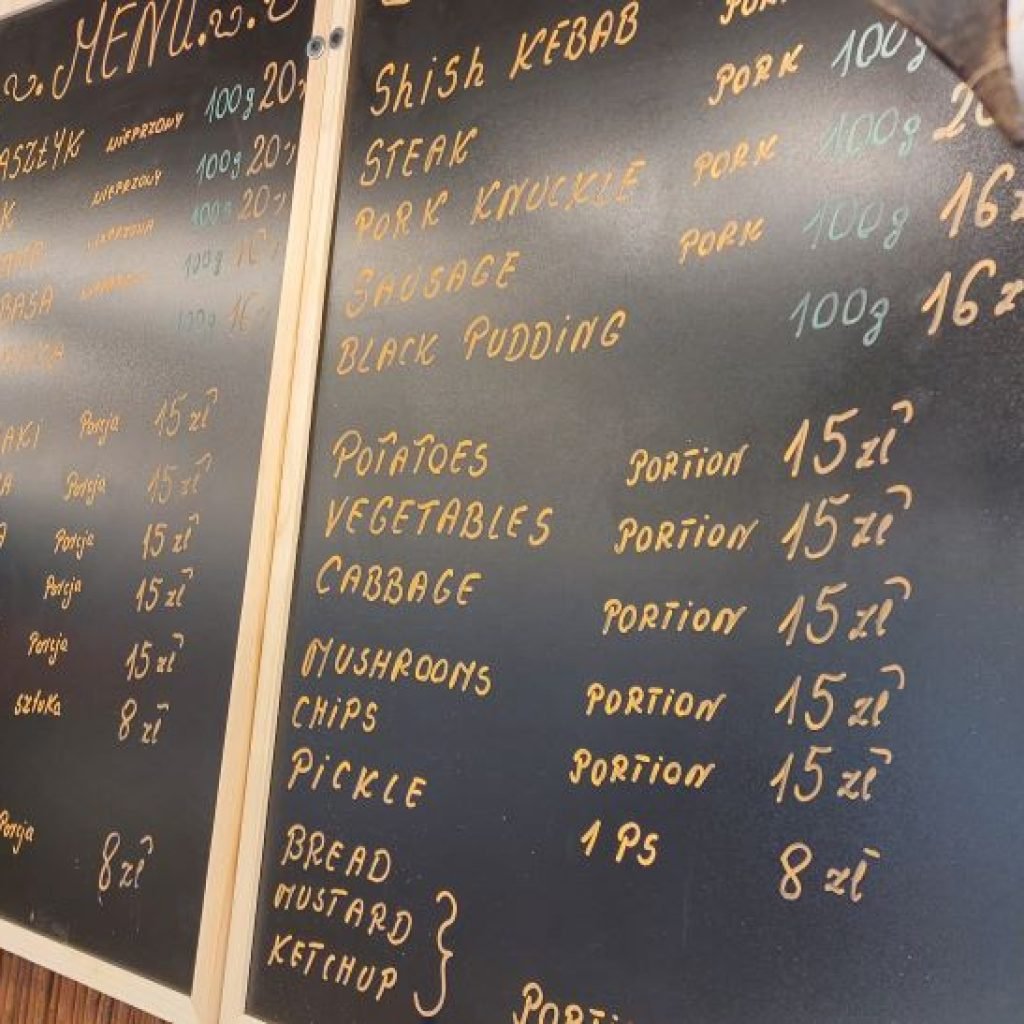 MENU
ASZŁYK NIEPRZOWY 100g 20
K NIEPRZOWY 100g 20
100g 20
BASA 100g 16
100g 16
AKI Porcja 15 zł
A Porcja 15 zł
A Porcja 15 zł
Porcja 15 zł
Porcja 15 zł
sztuka 8 zł
Porcja
8 zł
Shish KEBAB PORK 100g
STEAK PORK 100g 20
PORK KNUCKLE PORK 100g 16 z
SAUSAGE 100g 16 z
BLACK PUDDING
POTATOES PORTION 15 zł
VEGETABLES PORTION 15 zł
CABBAGE PORTION 15 zł
MUSHROOMS PORTION 15 zł
CHIPS PORTION 15 zł
PICKLE 1 PS 8 zł
BREAD
MUSTARD
KETCHUP
PORTI